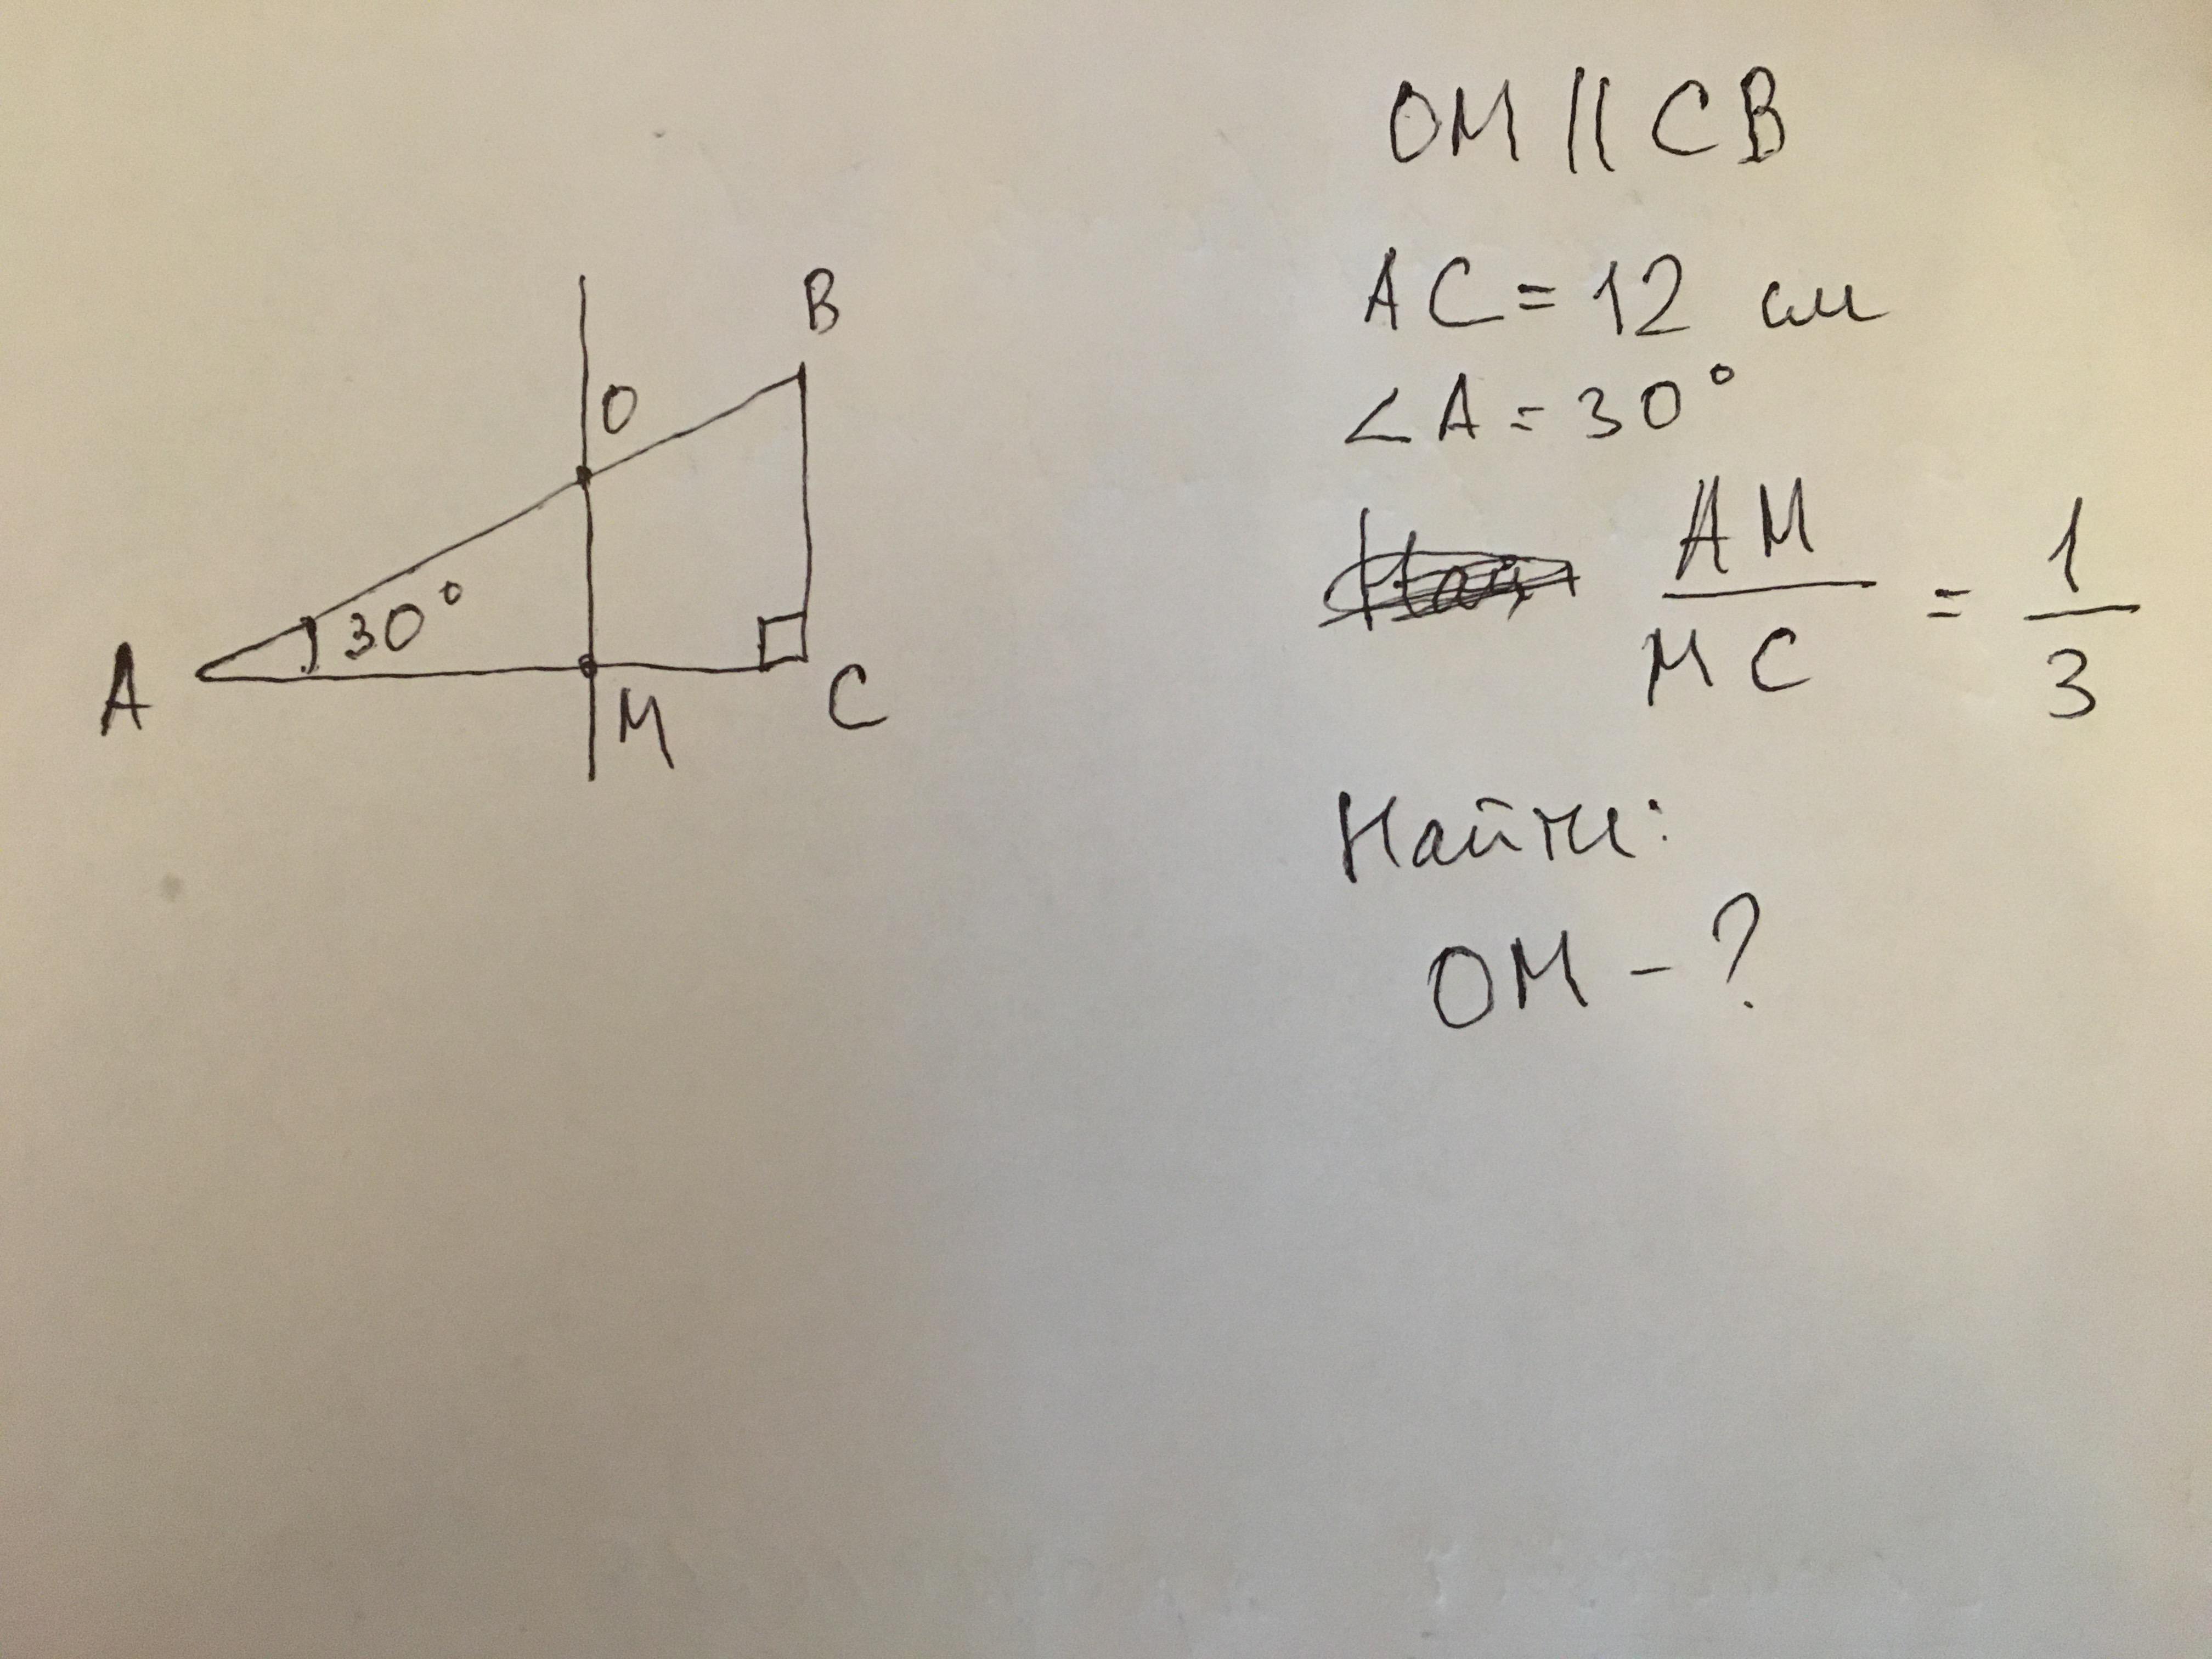 B
O
30°
A
M
C
OM || CB
AC = 12 см
∠A = 30°
AM/MC = 1/3
Найти:
OM - ?